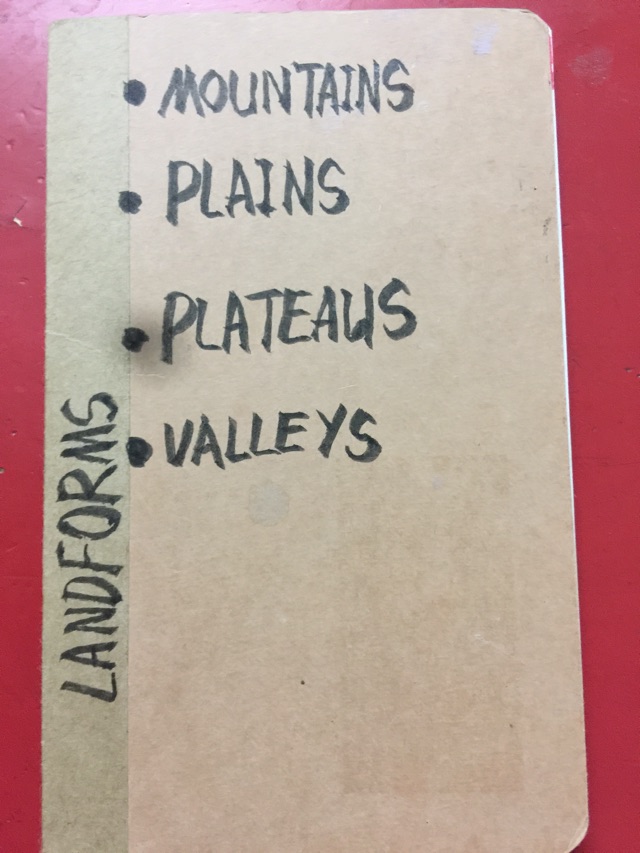 • MOUNTAINS
• PLAINS
• PLATEAUS
• VALLEYS
LANDFORMS